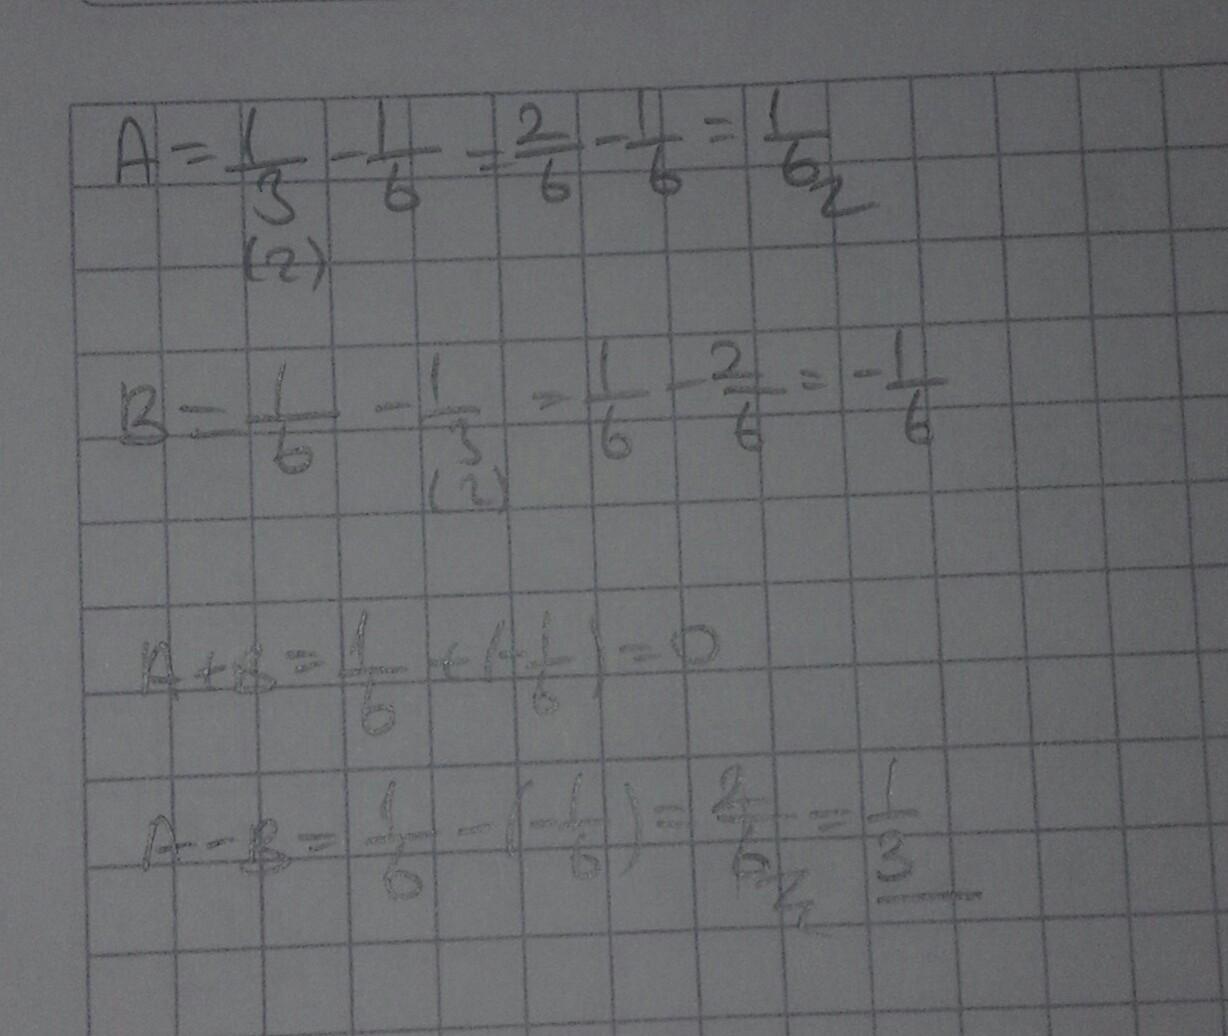 A = 1/3 - 1/6 = 2/6 - 1/6 = 1/6
(2)
B = 1/6 - 1/3 = 1/6 - 2/6 = -1/6
(2)
A+B = 1/6 + (-1/6) = 0
A-B = 1/6 - (-1/6) = 2/6 = 1/3